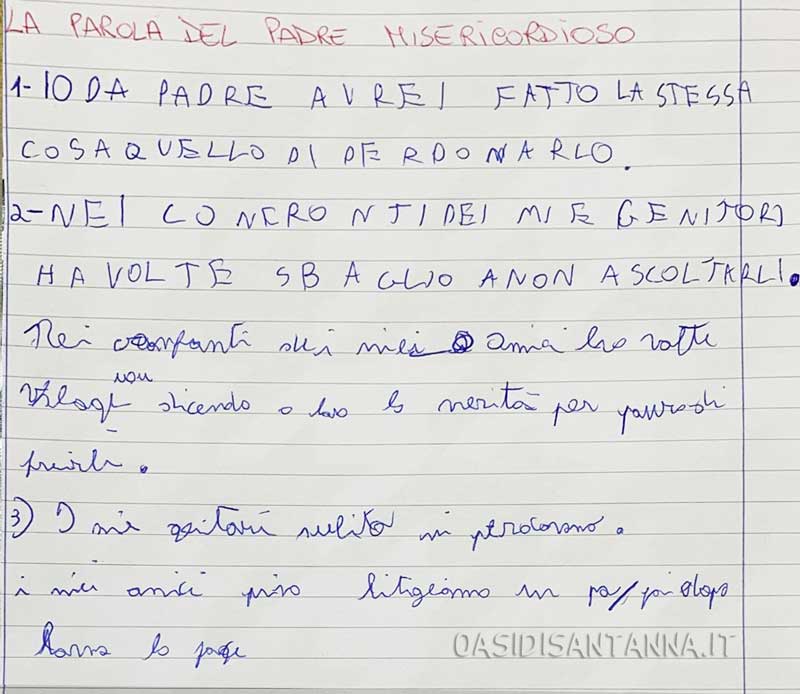 LA PAROLA DEL PADRE MISERICORDIOSO
1-IO DA PADRE AVREI FATTO LA STESSA
COSA QUELLO DI PERDONARLO.
2-NEI CONFRONTI DEI MIE GENITORI
HA VOLTE SBAGLIO A NON ASCOLTARLI.
Nei confanti dei miei amici ho volte
non dicendo a loro la verità per paura di
3) I mie gnitori subito mi perdonano.
i miei amici litighiamo un po/poi dopo
la pace
OASIDISANTANNA.IT